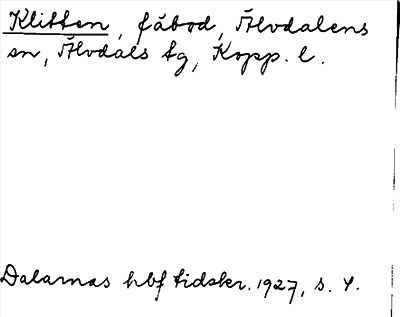 Klitten, fäbod, Älvdalens
sn, Älvdals tg, Kopp. l.
Dalarnas hbf tidskr. 1927, s. 4.